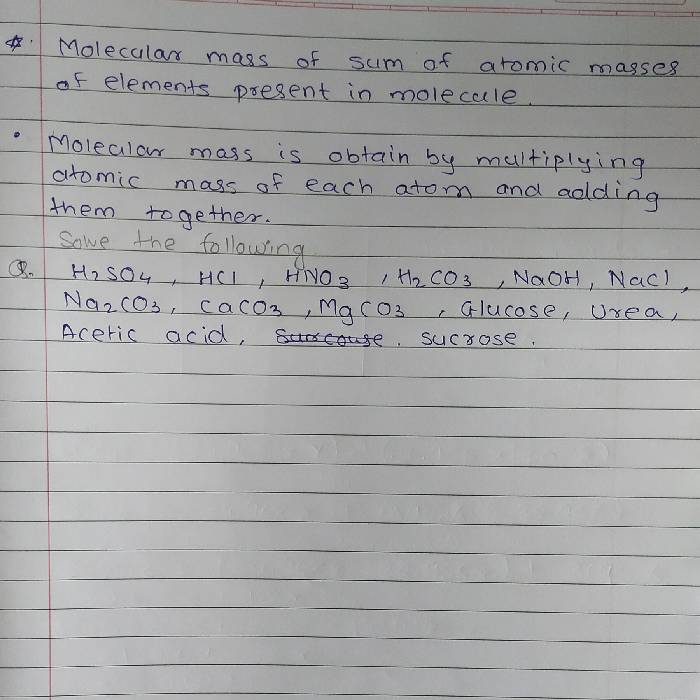 * Molecular mass of sum of atomic masses
of elements present in molecule.
• Moleculor mass is obtain by multiplying
atomic mass of each atom and adding
them together.
Solve the following
Q. H₂SO₄, HCl, HNO₃, H₂CO₃, NaOH, NaCl,
Na₂CO₃, CaCO₃, MgCO₃, Glucose, Urea,
Acetic acid, sucrose.